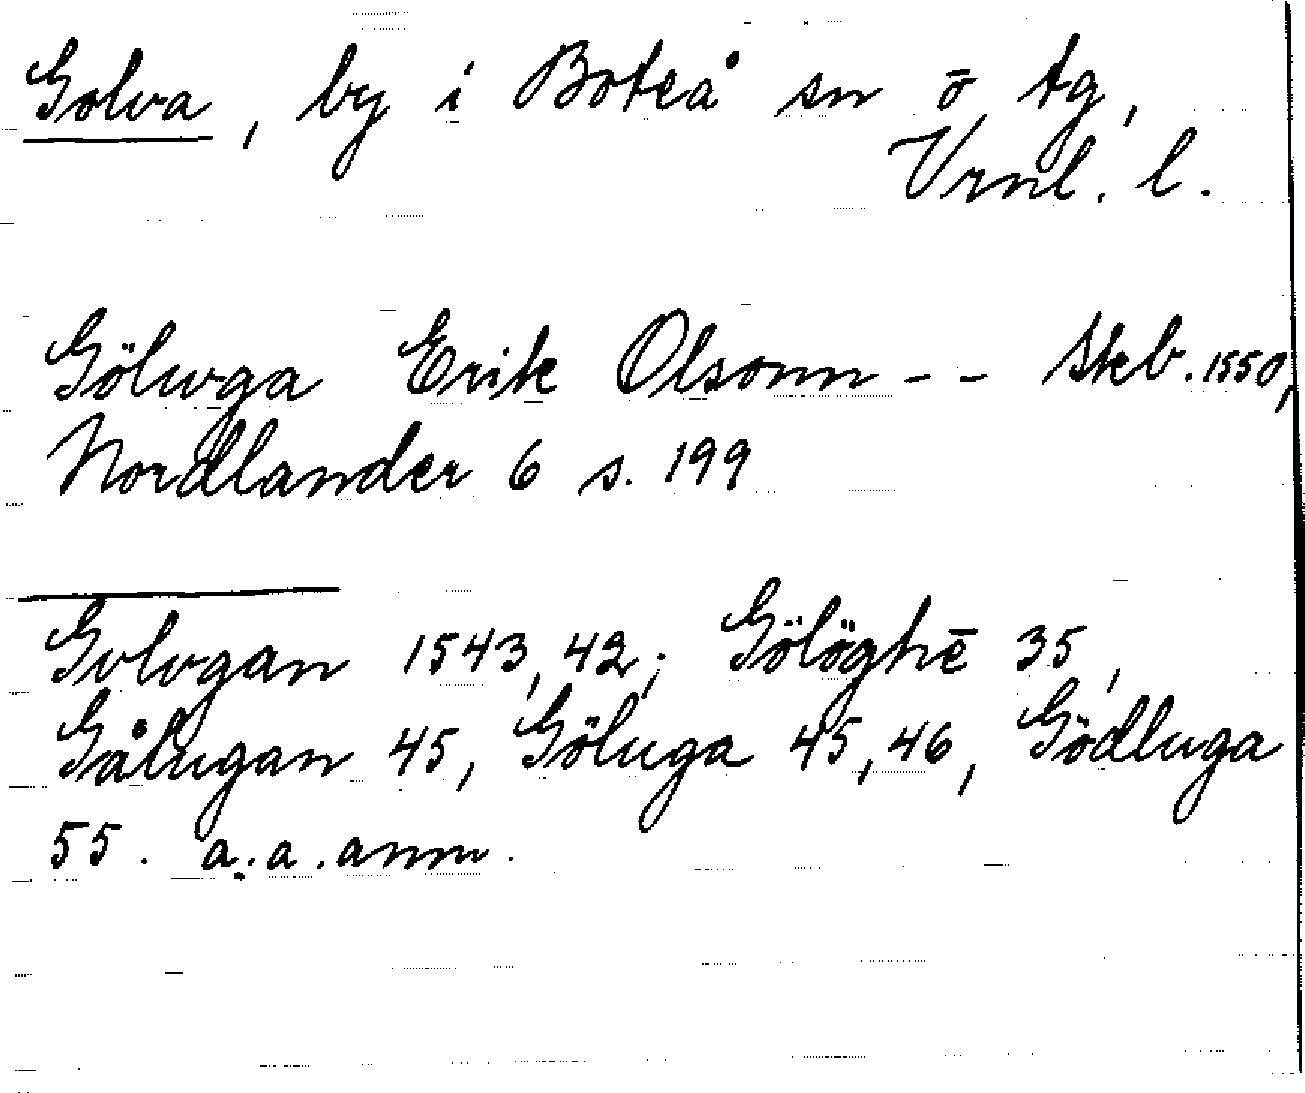 Golva, by i Boteå sn ō tg,
Vrnl. l.
Göluga Erik Olsonn -- Skb. 1550,
Nordlander 6 s. 199
Gvlvgan 1543, 42; Gölöghē 35,
Gålugan 45, Göluga 45, 46, Gödluga
55. a.a. anm.